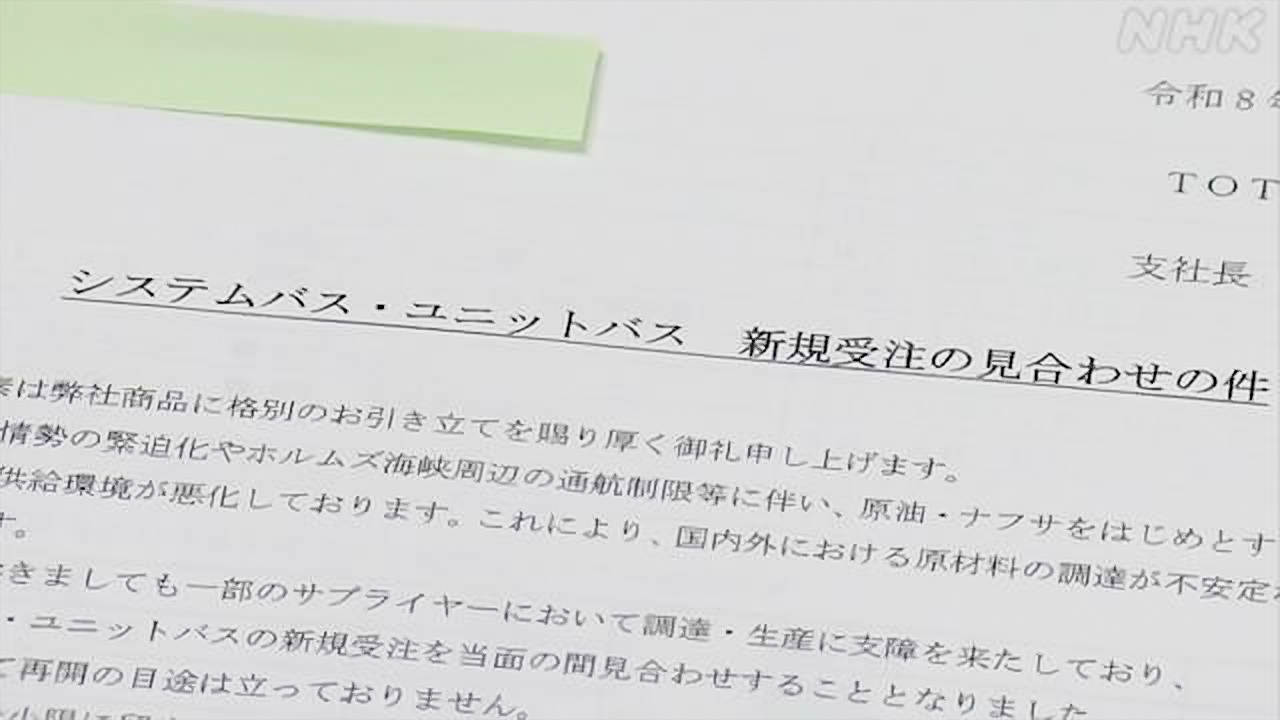 NHK
令和8年
TOT
支社長
システムバス・ユニットバス　新規受注の見合わせの件
は弊社商品に格別のお引き立てを賜り厚く御礼申し上げます。
情勢の緊迫化やホルムズ海峡周辺の通航制限等に伴い、原油・ナフサをはじめとす
供給環境が悪化しております。これにより、国内外における原材料の調達が不安定
す。
きましても一部のサプライヤーにおいて調達・生産に支障を来たしており、
・ユニットバスの新規受注を当面の間見合わせすることとなりました
て再開の目途は立っておりません。